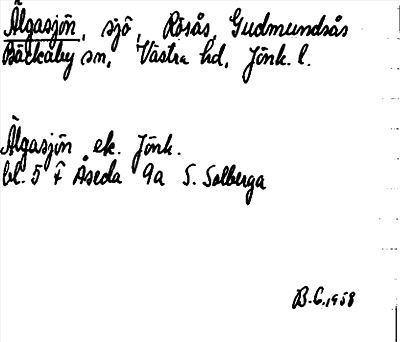 Älgasjön, sjö, Rösås, Gudmundsås
Bäckaby sn, Västra hd, Jönk. l.
Älgasjön ek. Jönk.
bl. 5 F Åseda 9a S. Solberga
B.G. 1958